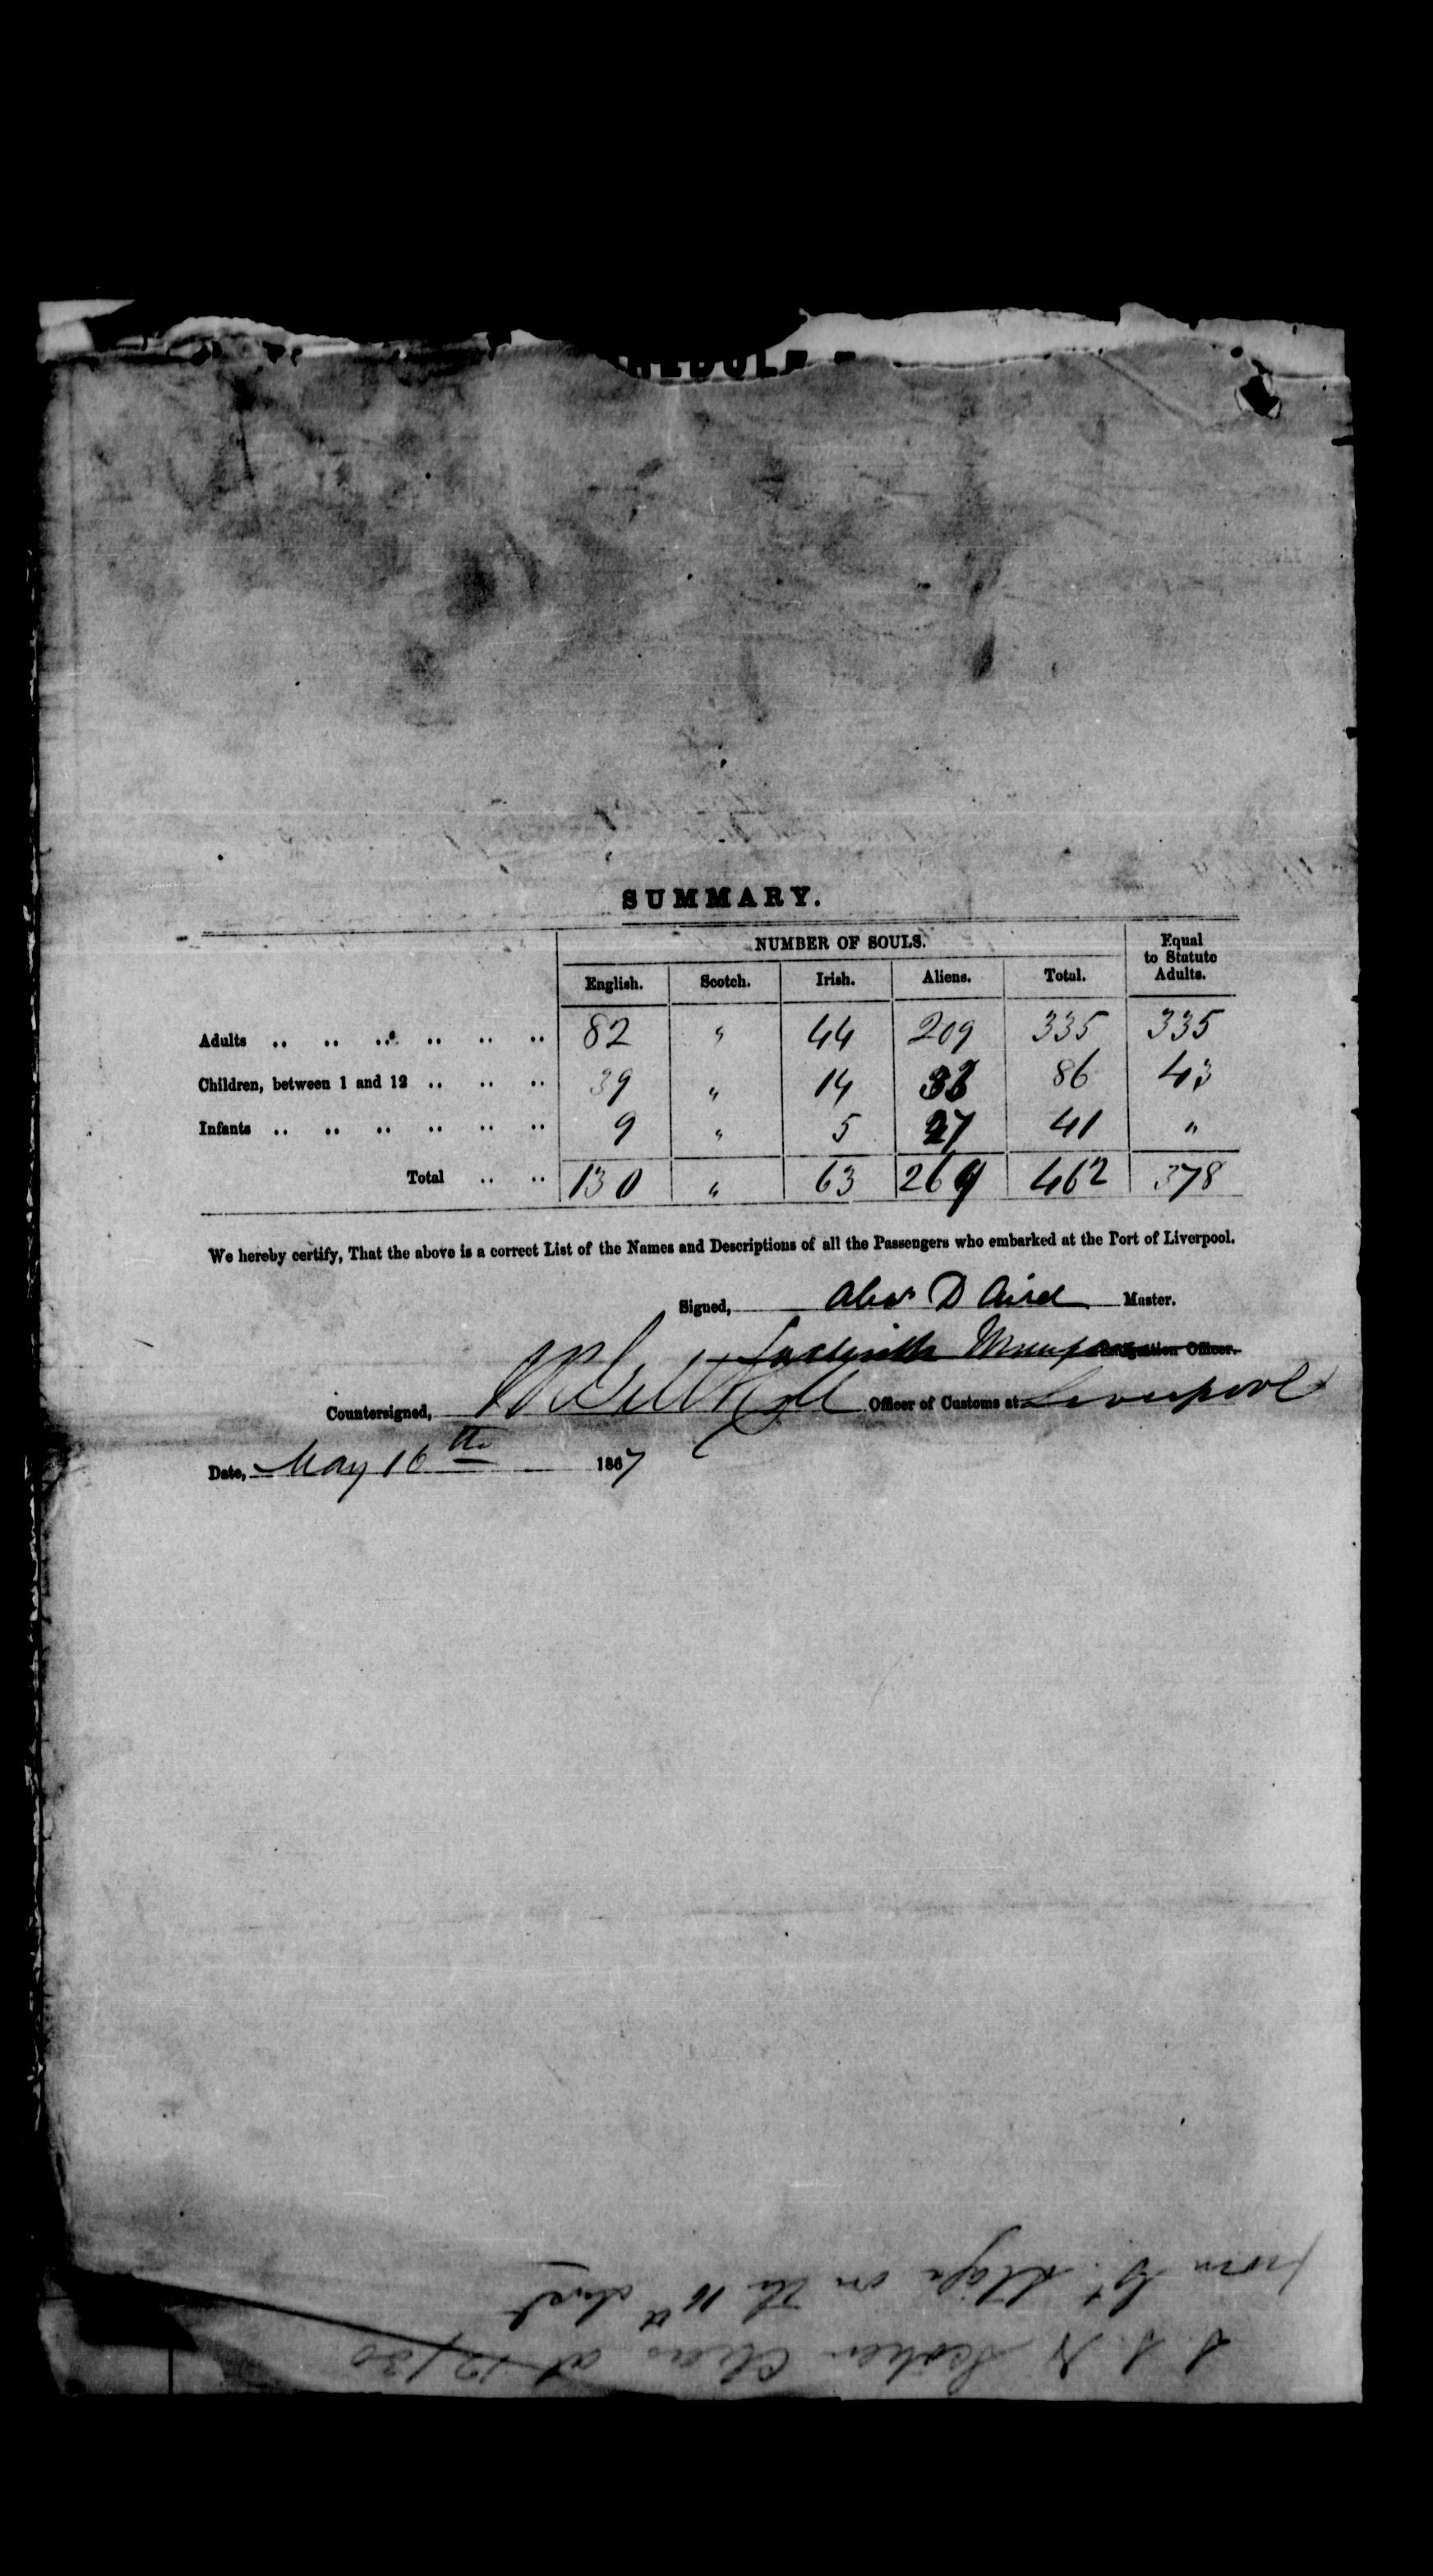 SUMMARY.
NUMBER OF SOULS. Equal to Statute Adults.
English. Scotch. Irish. Aliens. Total.
Adults .. .. .. .. .. .. 82 " 44 209 335 335
Children, between 1 and 12 .. .. .. 39 " 14 33 86 43
Infants .. .. .. .. .. .. 9 " 5 27 41 "
Total .. .. 130 " 63 269 462 378
We hereby certify, That the above is a correct List of the Names and Descriptions of all the Passengers who embarked at the Port of Liverpool.
Signed, Alexr D Aird Master.
Emigration Officer.
Countersigned, Officer of Customs at Liverpool
Date, May 16th 1867
S. S. N. Scotia Clear at 12/30
from Gt. on the 16th